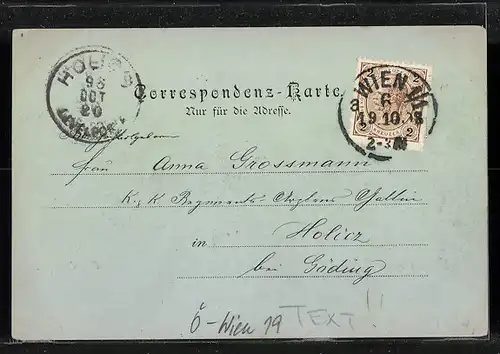 HOLICS
98
OCT
20
Correspondenz-Karte.
Nur für die Adresse.
WIEN
8
19.10.98
2-3N
2 KREUZER 2
Frau Anna Grossmann
K. u. K. Regiments-Arztens Gattin
in Holicz
bei Göding
Ö-Wien 19 TEXT!!